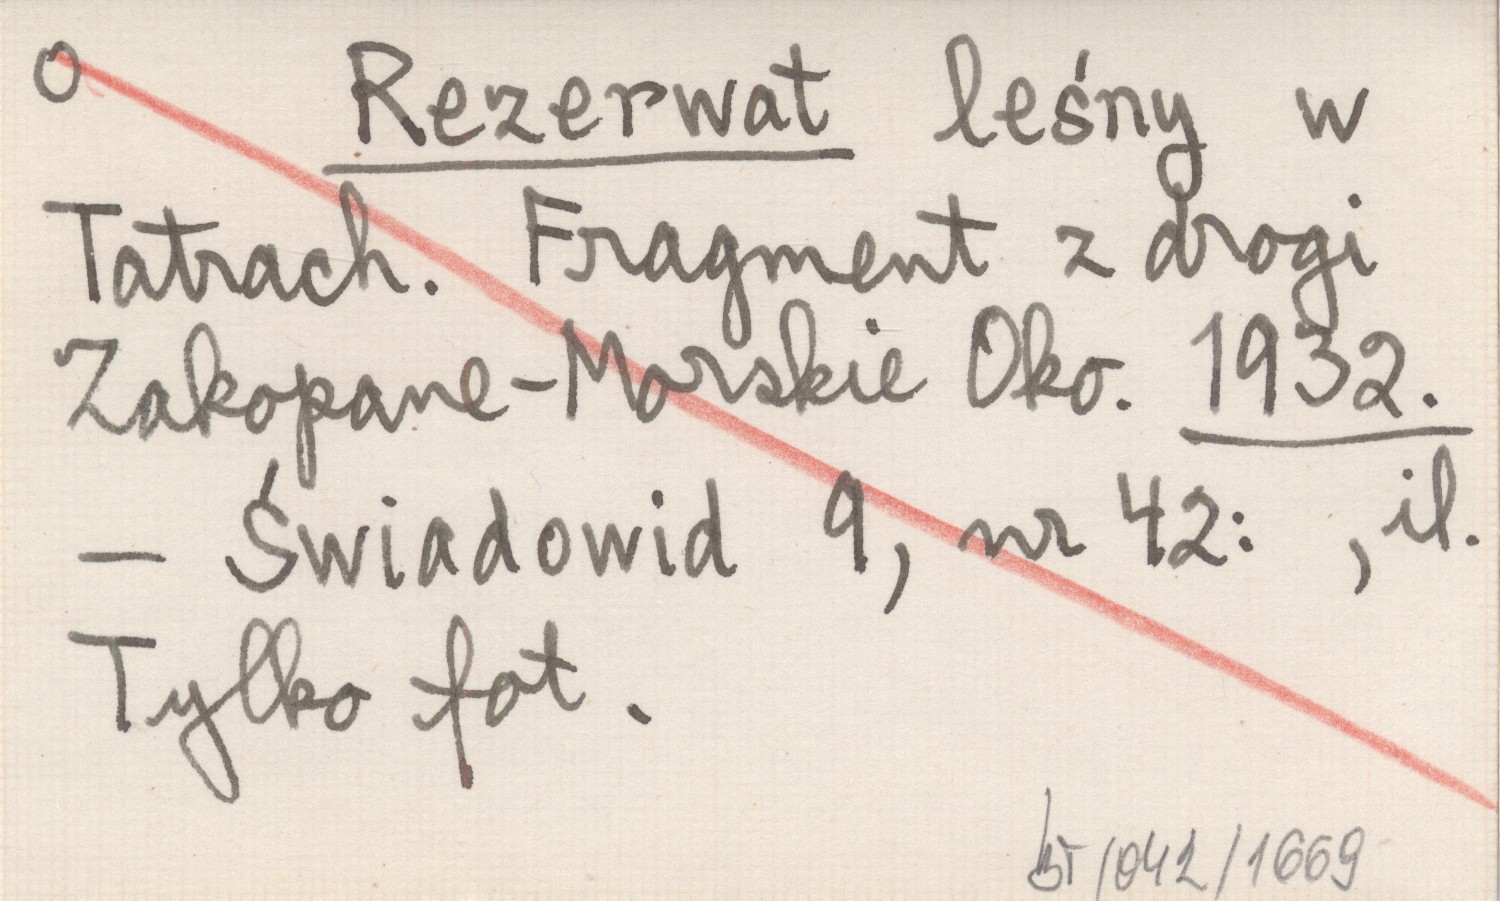 O Rezerwat leśny w
Tatrach. Fragment z drogi
Zakopane-Morskie Oko. 1932.
— Świadowid 9, nr 42: , il.
Tylko fot.
/042/1669